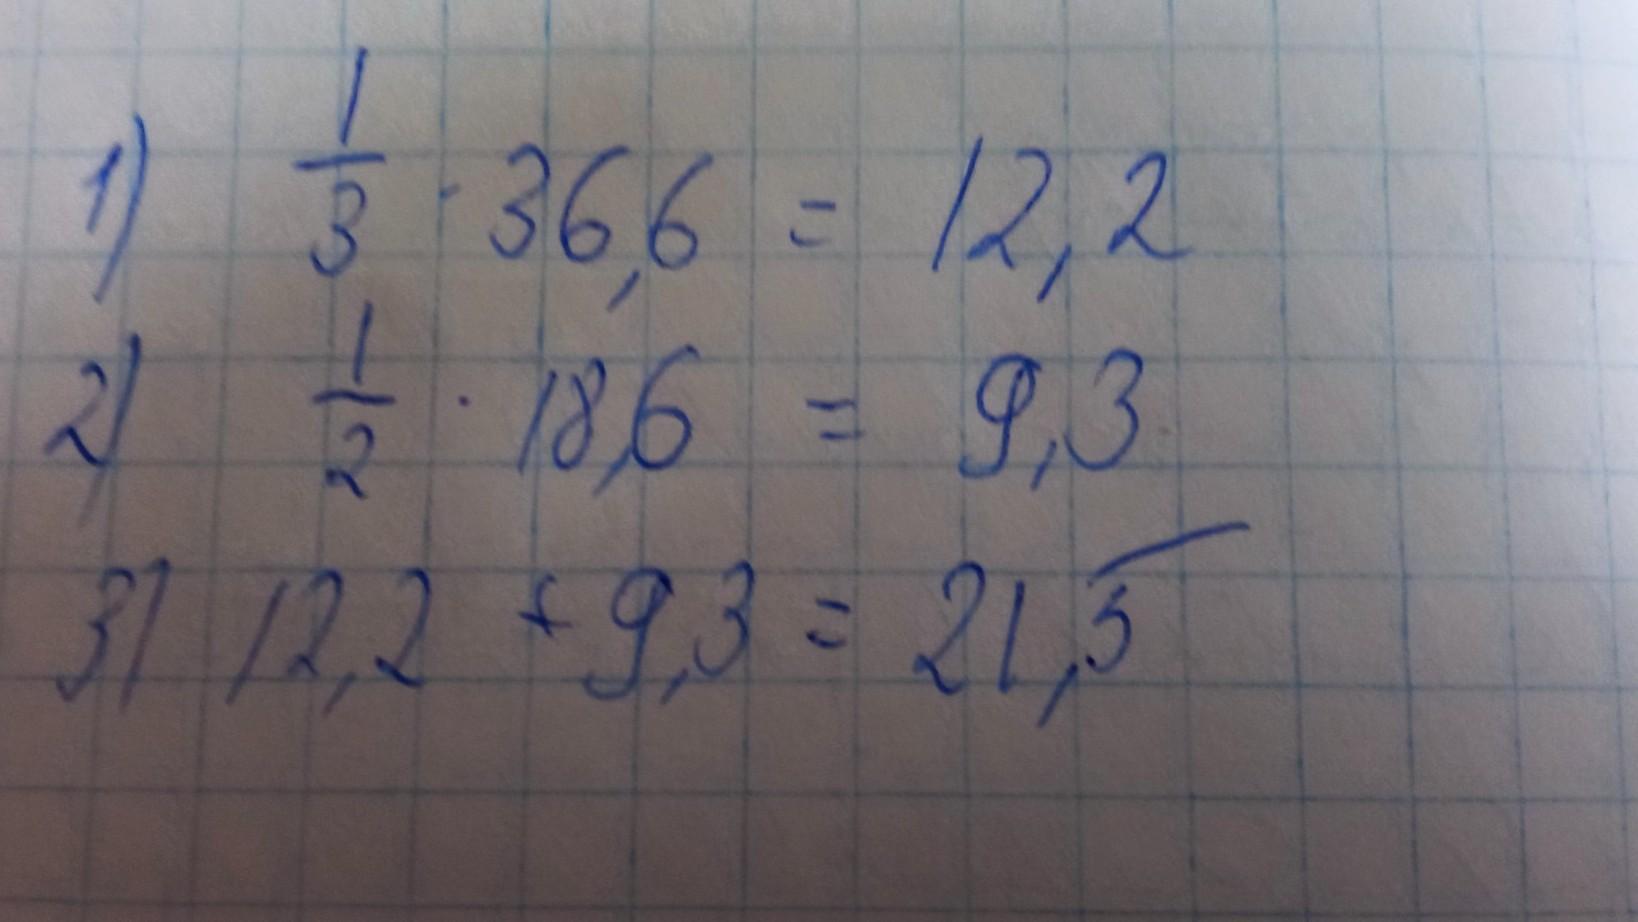 1) 1/3 · 36,6 = 12,2
2) 1/2 · 18,6 = 9,3
3) 12,2 + 9,3 = 21,5